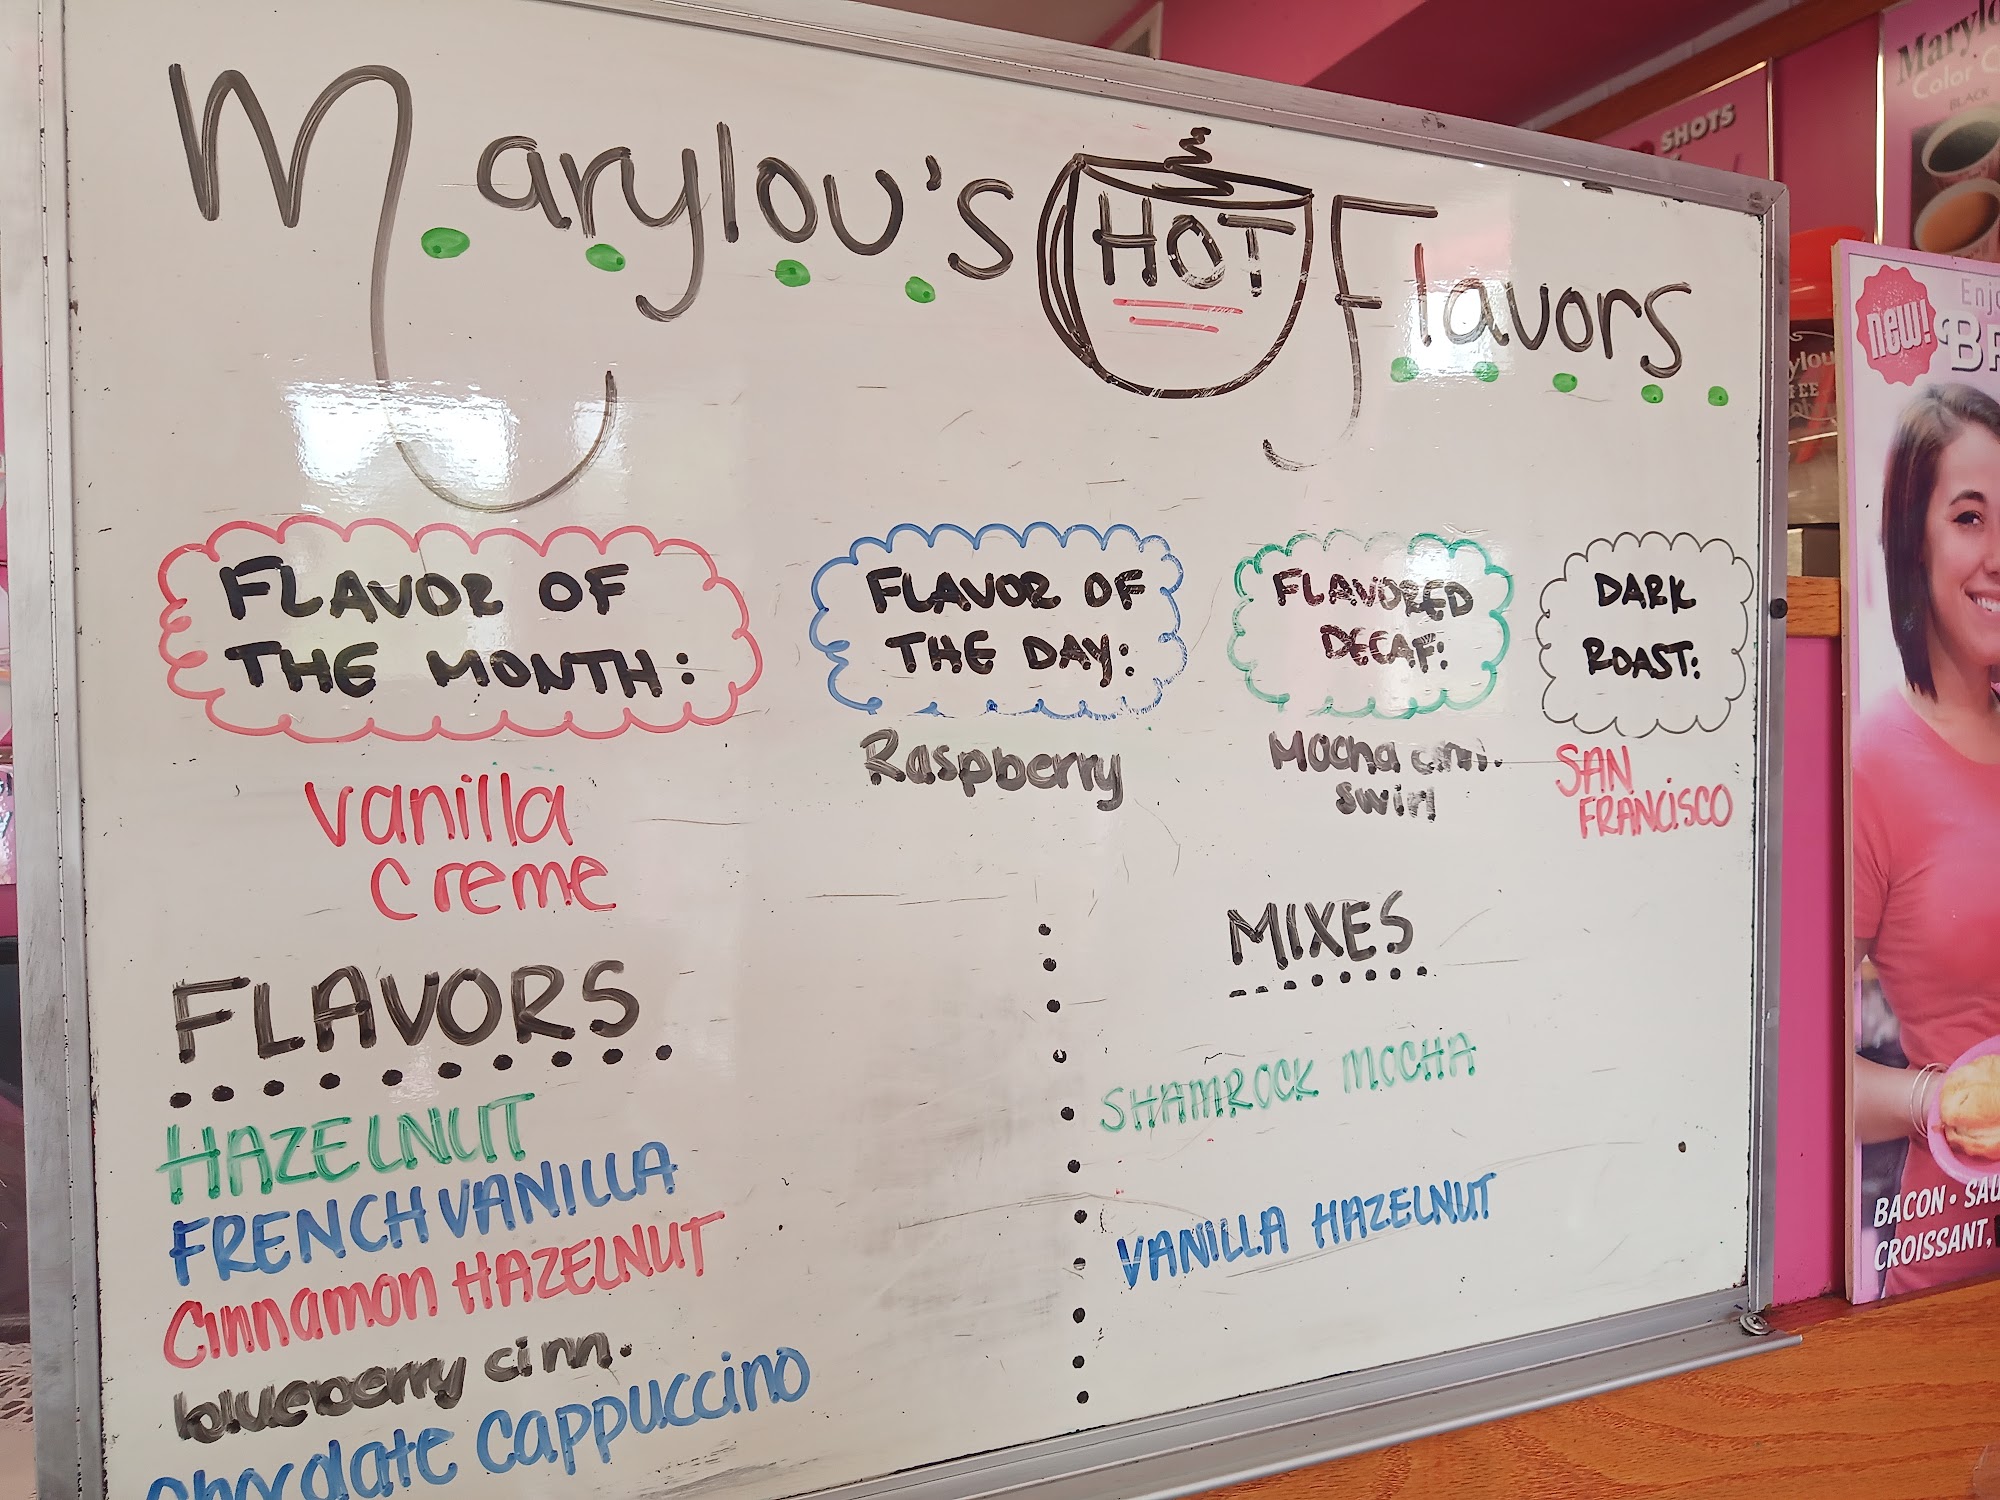 Marylou's HOT Flavors
FLAVOR OF
THE MONTH:
Vanilla
Creme
FLAVOR OF
THE DAY:
Raspberry
FLAVORED
DECAF:
Mocha cinn.
swirl
DARK
ROAST:
SAN
FRANCISCO
FLAVORS
HAZELNUT
FRENCH VANILLA
Cinnamon HAZELNUT
blueberry cinn.
Chocolate Cappuccino
MIXES
SHAMROCK MOCHA
VANILLA HAZELNUT
SHOTS
Color
BLACK
new!
BACON •
CROISSANT,